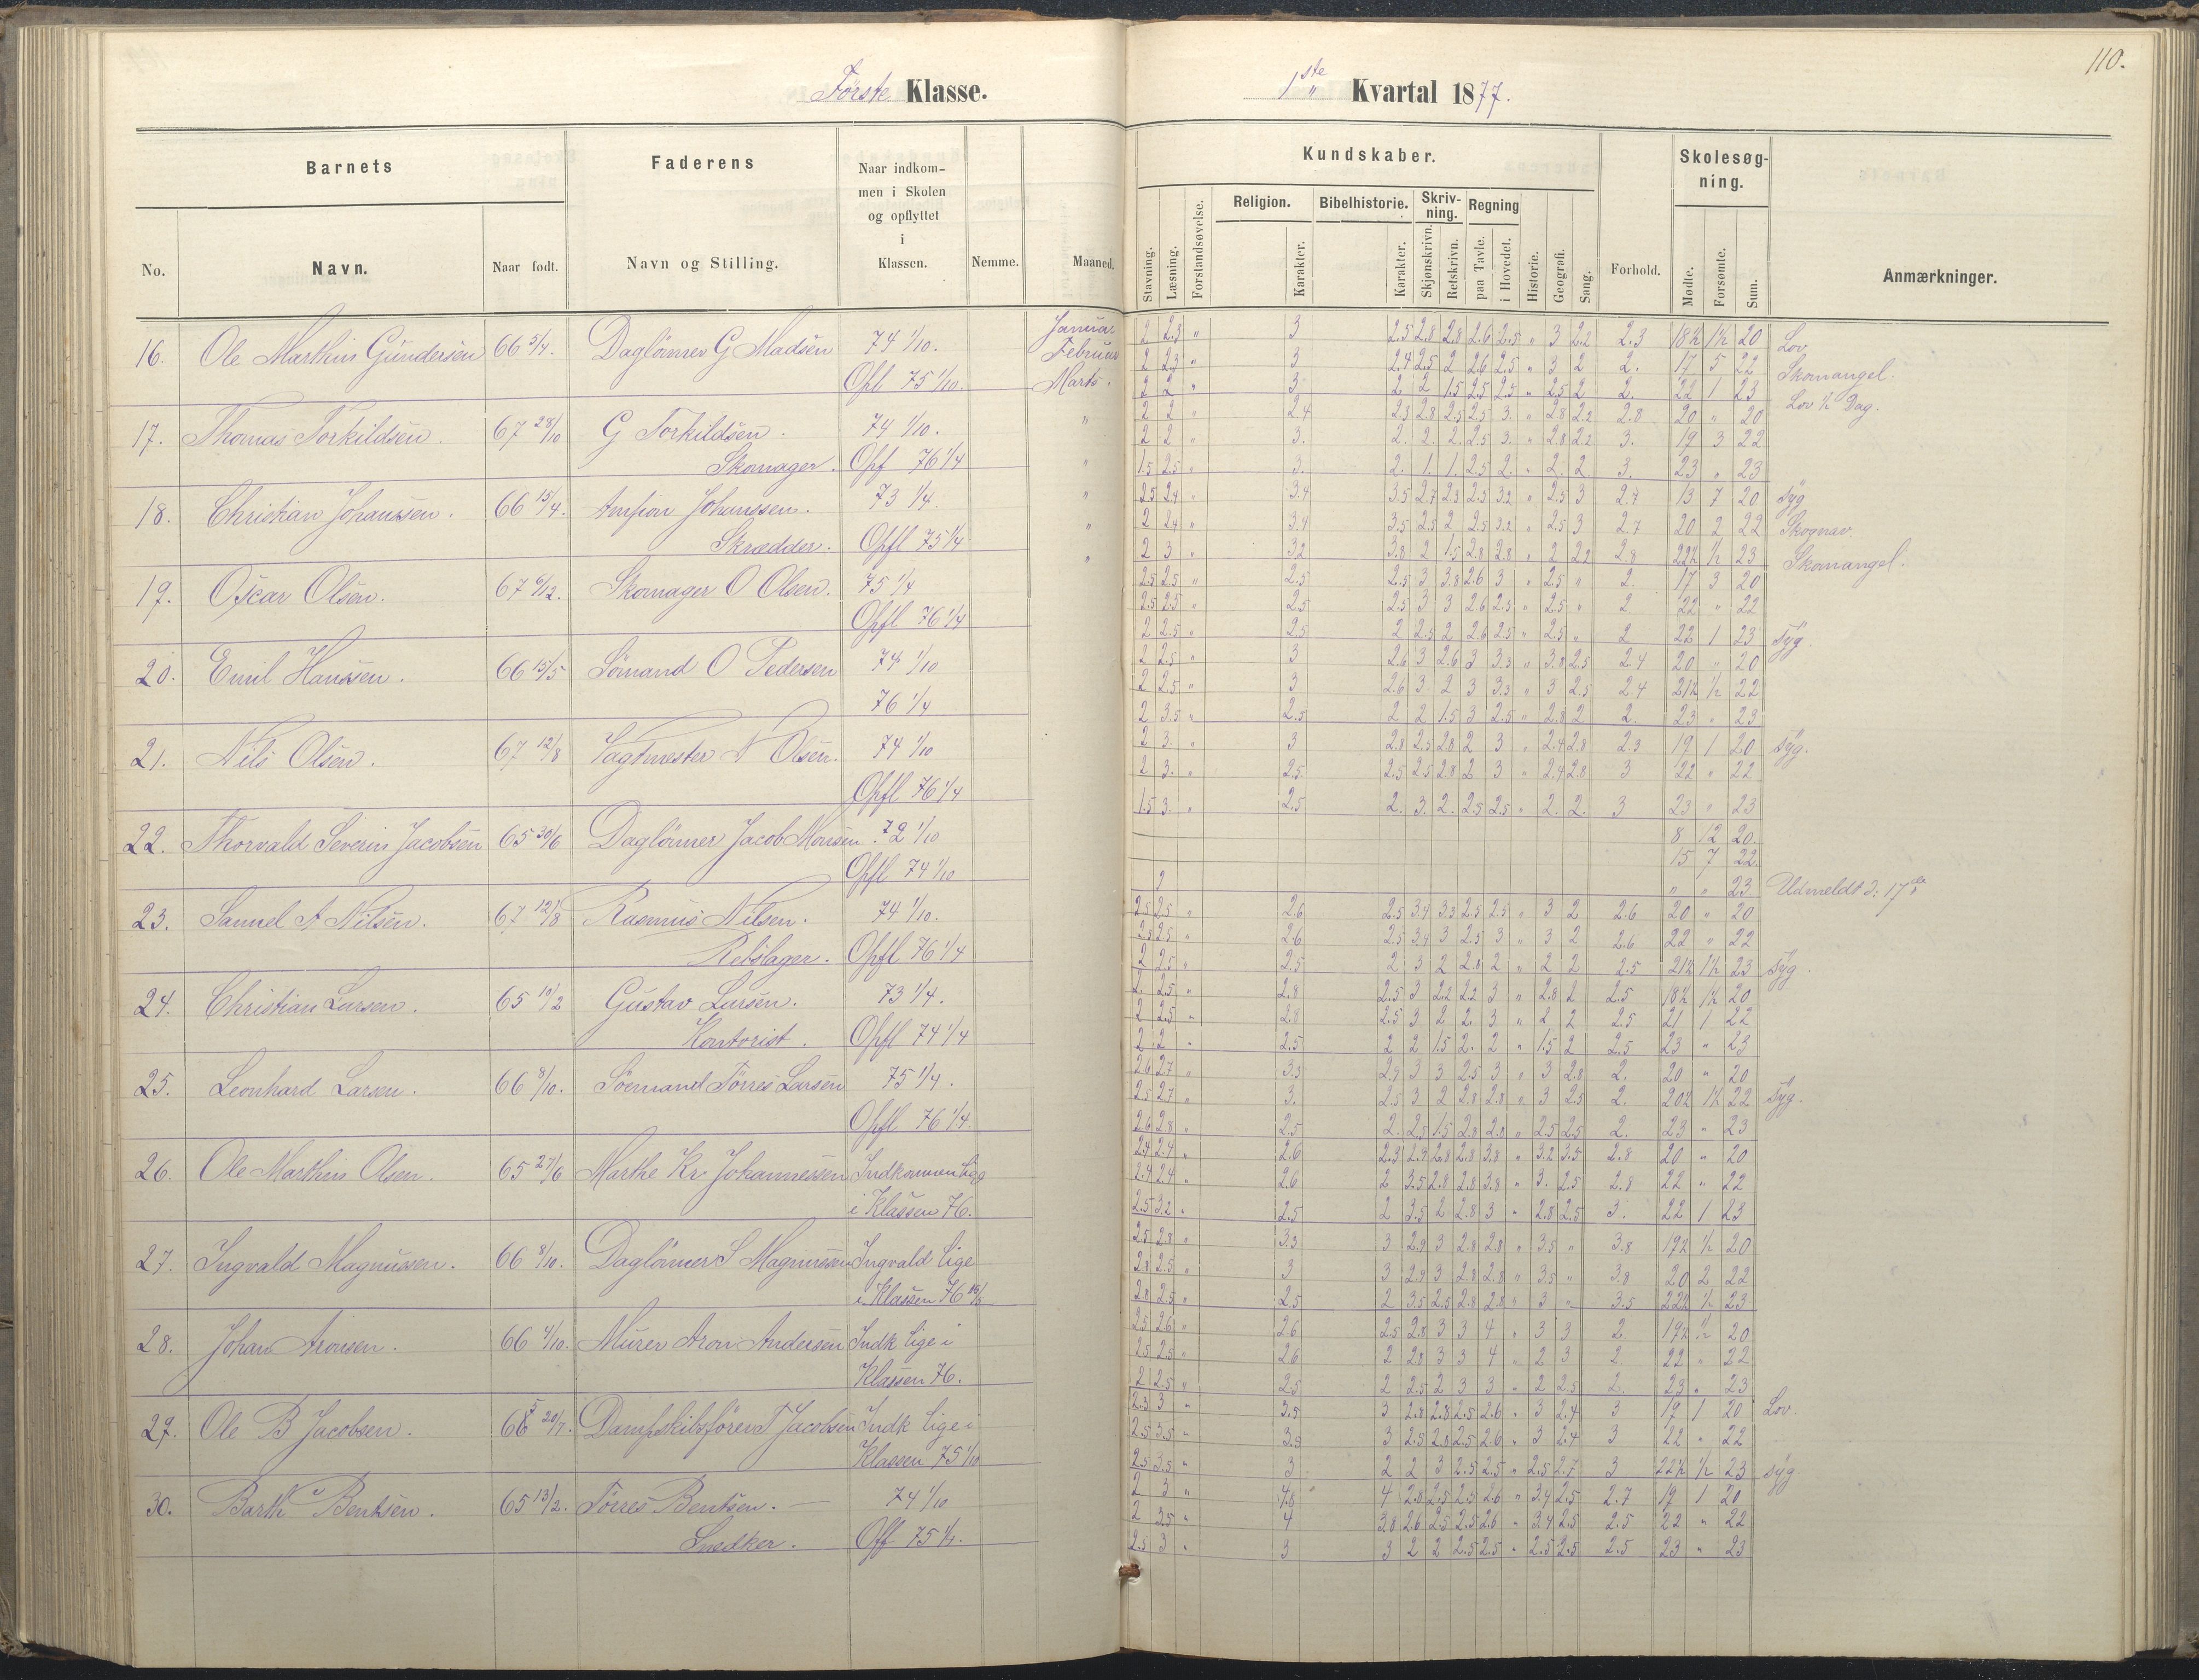 110.
Første Klasse.
1ste Kvartal 1877.
Barnets
Faderens
Naar indkom-
men i Skolen
og opflyttet
i
Klassen.
Nemme.
Maaned.
No.
Navn.
Naar født.
Navn og Stilling.
Kundskaber.
Skolesøg-
ning.
Stavning.
Læsning.
Forstandsøvelse.
Religion.
Karakter.
Bibelhistorie.
Karakter.
Skriv-
ning.
Skjønskrivn.
Retskrivn.
Regning
paa Tavle.
i Hovedet.
Historie.
Geografi.
Sang.
Forhold.
Mødte.
Forsømte.
Sum.
Anmærkninger.
16. Ole Marthin Gundersen 66 5/4. Daglönner G Madsen 74 1/10.
Opfl 75 1/10
Januar 2 2.3 " 3 2.5 2.8 2.8 2.6 2.5 " 3 2.2 2.3 18½ 1½ 20 Lov
Februar 2 2.3 " 3 2.4 2.5 2 2.6 2.5 " 3 2 2. 17 5 22 Skomangel
Marts. 2 2 " 3 2 2 1.5 2.5 2.5 " 2.5 2 2. 22 1 23 Lov ½ Dag.
17. Thomas Torkildsen. 67 28/10 G Torkildsen. 74 1/10.
Skomager. Opf 76 1/4
" 2 2 " 2.4 2.3 2.8 2.5 2.5 3. " 2.8 2.2 2.8 20 " 20
2 2 " 3. 2. 2. 2. 2.5 3. " 2.8 2.2 3. 19 3 22
" 1.5 2.5 " 3. 2. 1. 1. 2.5 2. " 2. 2. 3. 23 " 23
18. Christian Johanssen. 66 15/4. Johanssen. 73 1/4.
Skrædder. Opfl 75 1/4
" 2.5 2.4 " 3.4 3.5 2.7 2.3 2.5 3.2 " 2.5 3 2.7 13 7 20 Syg
" 2 2.4 " 3.4 3.5 2.5 2 2.5 3.2 " 2.5 3 2.7 20 2 22
" 2 3 " 3.2 3.8 2 1.5 2.8 2.8 " 2 2.2 2.8 22½ ½ 23 Skomangel.
19. Oscar Olsen. 67 6/12. Skomager O Olsen. 75 1/4
Opfl 76 1/4
2.5 2.5 " 2.5 2.5 3 3.8 2.6 3 " 2.5 " 2. 17 3 20
2.5 2.5 " 2.5 2.5 3 3 2.6 2.5 " 2.5 " 2 22 " 22
2 2.5 " 2.5 2 2.5 2 2.6 2.5 " 2.5 " 2 22 1 23 Syg.
20. Emil Hanssen. 66 15/5 Sömand O Pedersen 74 1/10
76 1/4
2 2.5 " 3 2.6 3 2.6 3 3.3 " 3.8 2.5 2.4 20 " 20
2 2.5 " 3 2.6 3. 2 3 3.3 " 3 2.5 2.4 21½ ½ 22
2 3.5 " 2.5 2 2 1.5 3 2.5 " 2.8 2 2. 23 " 23
21. Nils Olsen. 67 12/8 Vagtmester N Olsen. 74 1/10
Opfl 76 1/4
2 3. " 3 2.8 2.5 2.8 2 3 " 2.4 2.8 2.3 19 1 20 Syg.
2 3. " 2.5 2.5 2.5 2.8 2 3 " 2.4 2.8 3 22 " 22
1.5 3. " 2.5 2. 3. 2. 2.5 2.5 " 2. 2. 3 23 " 23
22. Thorvald Severin Jacobsen 65 30/6 Daglönner Jacob Monsen. 72 1/10
Opfl 74 1/10
8 12 20.
15 7 22.
" " 23 Udmeldt d. 17de
23. Samuel A Nilsen. 67 12/8 Rasmus Nilsen. 74 1/10.
Rebslager. Opfl 76 1/4
2.5 2.5 " 2.6 2.5 3.4 3.3 2.5 2.5 " 3 2 2.6 20 " 20
2.5 2.5 " 2.6 2.5 3.4 3 2.5 3 " 3 2 2.6 22 " 22
2 2.5 " 2.5 2 3 2 2.8 2 " 2 2 2.5 21½ 1½ 23 Syg.
24. Christian Larsen. 65 10/2 Gustav Larsen. 73 1/4.
Kontorist. Opfl 74 1/4
2. 2.5 " 2.8 2.5 3 2.2 2.2 3 " 2.8 2 2.5 18½ 1½ 20
2 2.5 " 2.8 2.5 3 2 2. 3 " 2 2 2.5 21 1 22
2 2 " 2.5 2 2 1.5 2. 2 " 1.5 2 2.5 23 " 23
25. Leonhard Larsen. 66 8/10. Söemand Tørres Larsen 75 1/4.
Opfl 76 1/4.
2.6 2.7 " 3.3 2.9 3 3 2.5 3 " 3 2.8 2. 20 " 20
2.5 2.7 " 3. 2.5 3 2 2.8 2.8 " 3 2.5 2. 20½ 1½ 22 Syg.
2.6 2.8 " 2.5 2. 2.5 1.5 2.8 2.8 " 2.5 2.5 2. 23 " 23
26. Ole Marthin Olsen. 65 27/6 Marthe Kr. Johannessen Indkommen lige
i Klassen 76.
2.4 2.4 " 2.6 2.3 2.9 2.8 2.8 3.8 " 3.2 3.5 2.8 20 " 20
2.4 2.4 " 2.6 2 3.5 2.8 2.8 3.8 " 3. 2.5 2.8 22 " 22
2.5 3.2 " 2.5 2 3.5 2 2.8 3 " 2.8 2.5 3. 22 1 23
27. Ingvald Magnussen. 66 8/10. Daglönner S Magnussen Ingvald lige
i Klassen 76 15/5
2.5 2.8 " 3.3 3 2.9 3 2.8 2.8 " 3.5 " 3.8 19½ ½ 20
2.8 2.5 " 3 3 2.9 3 2.8 2.8 " 3.5 " 3.8 20 2 22
2.8 2.5 " 2.5 2 3.5 2.5 2.8 2.8 " 3 " 3.5 22½ ½ 23
28. Johan Aronsen. 66 4/10. Murer Aron Andersen Indk lige i
Klassen 76.
2.5 2.6 " 2.6 2.5 2.8 3 3 4 " 3 3 2 19½ ½ 20
2.5 2.5 " 2.6 2 2.8 3 3 4 " 2 3 2. 22 " 22
2 2.5 " 2.5 2 2.5 2 3 3 " 2 2.5 2. 23 " 23
29. Ole B Jacobsen. 65 20/7. Dampskibsfører T Jacobsen Indk lige i
Klassen 75 1/10
2.3 3 " 3.5 3 2.8 2.8 2.5 2.6 " 3 2.4 3 19 1 20 Lov.
2.5 3.5 " 3.5 3 2.5 2.8 2.5 2.6 " 3 2.4 3 22 " 22
2.5 3.5 " 3 2 2 3 2.5 2.5 " 2.5 2.7 3 22½ ½ 23 Syg.
30. Barth Bentsen. 65 13/2. Tørres Bentsen. — 74 1/10
Snedker. Off 75 1/4.
2 3 " 4.8 " 4 2.8 2.5 2.5 2.6 " 3.4 2.5 2.7 19 1 20
2 3.5 " 4 3.8 2.6 2.5 2.5 2.6 " 3.4 2.5 2.5 22 " 22
2.5 3 " 3 3 2 2 2.5 2.5 " 2.5 2.5 2.5 23 " 23